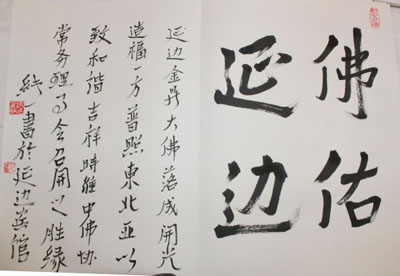 佛佑
延边
延边金鼎大佛落成开光
造福一方普照東北亚以
致和谐吉祥時維中佛协
常务理事会召开之胜缘
纯一書於延边宾馆